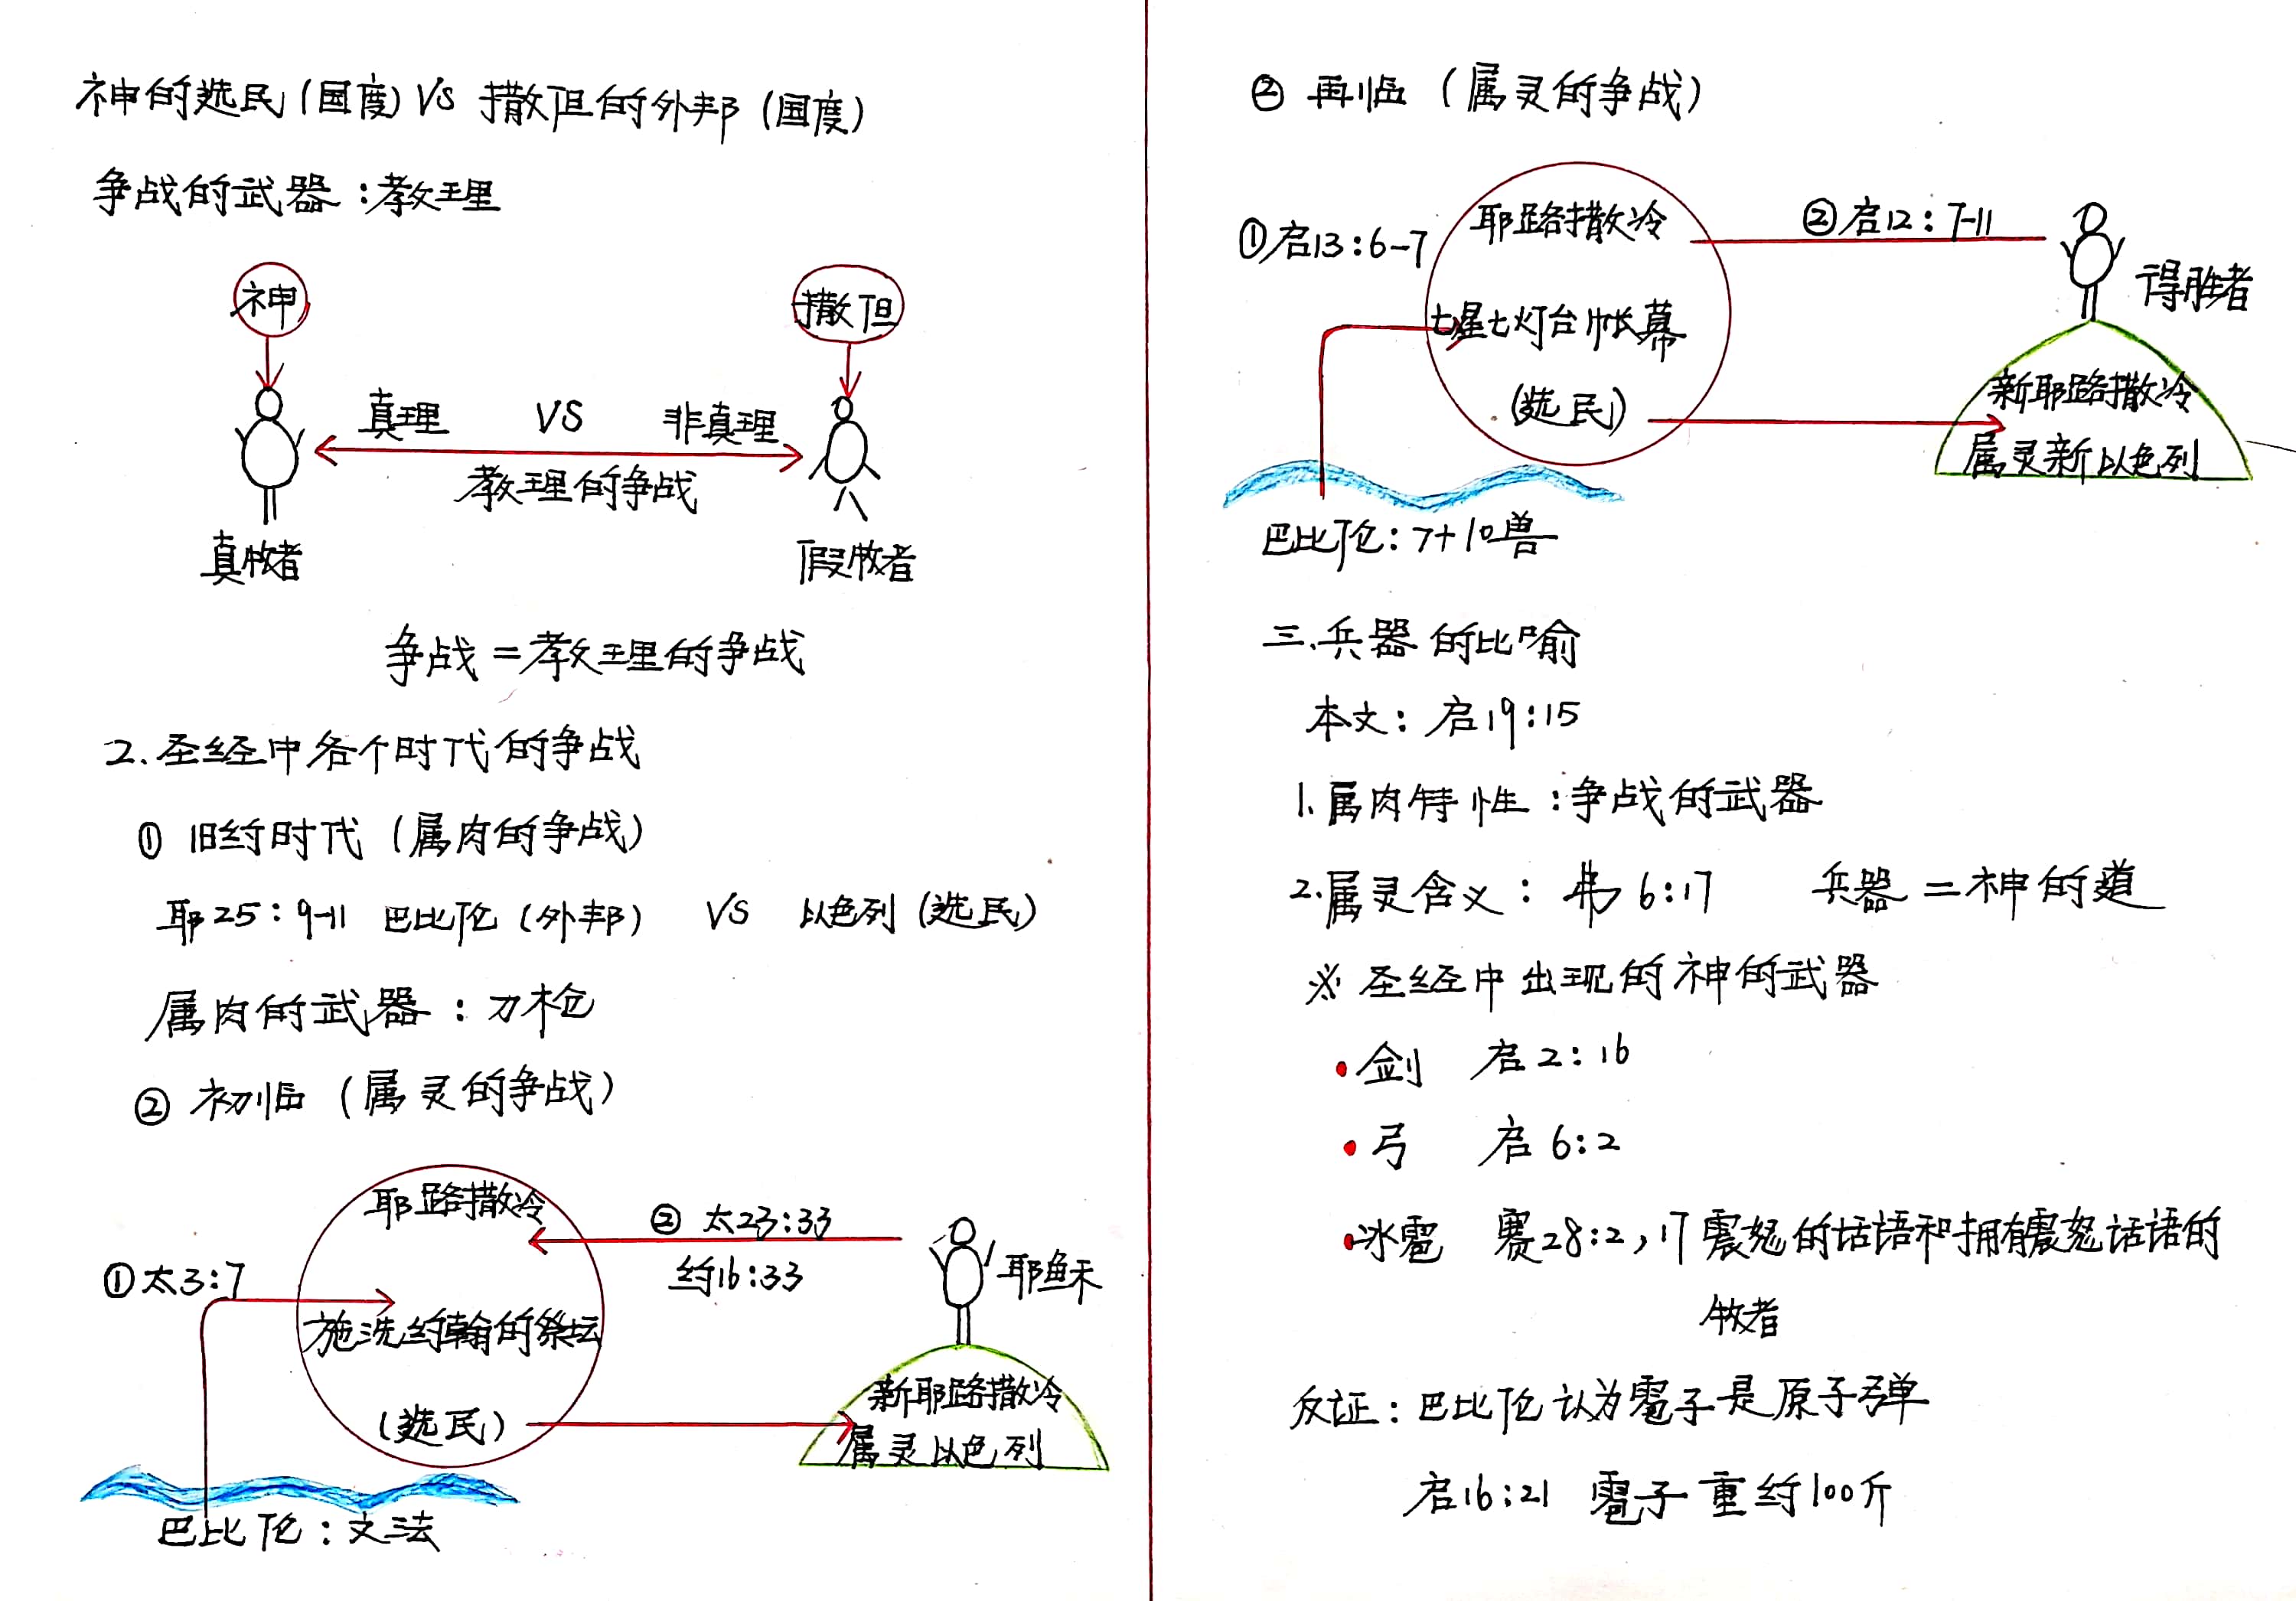 神的选民(国度) VS 撒但的外邦(国度)
争战的武器:教理
神
撒但
真理 VS 非真理
教理的争战
真牧者
假牧者
争战=教理的争战
2.圣经中各个时代的争战
① 旧约时代(属肉的争战)
耶25:9-11 巴比伦(外邦) VS 以色列(选民)
属肉的武器:刀枪
② 初临(属灵的争战)
耶路撒冷
② 太23:33
约16:33
①太3:7
耶稣
施洗约翰的祭坛
新耶路撒冷
(选民)
属灵以色列
巴比伦:文法
② 再临(属灵的争战)
耶路撒冷
②启12:7-11
①启13:6-7
得胜者
七星七灯台帐幕
新耶路撒冷
(选民)
属灵新以色列
巴比伦:7+10兽
三.兵器的比喻
本文:启19:15
1.属肉特性:争战的武器
2.属灵含义:弗6:17 兵器=神的道
※ 圣经中出现的神的武器
•剑 启2:16
•弓 启6:2
•冰雹 赛28:2,17 震怒的话语和拥有震怒话语的
牧者
反证:巴比伦认为雹子是原子弹
启16:21 雹子重约100斤